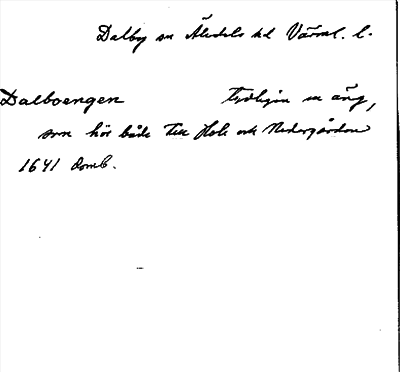 Dalby sn Älvdals hd Värml. l.
Dalboengen tydligen en äng,
som hör både till Hole och Nedergården
1641 domb.